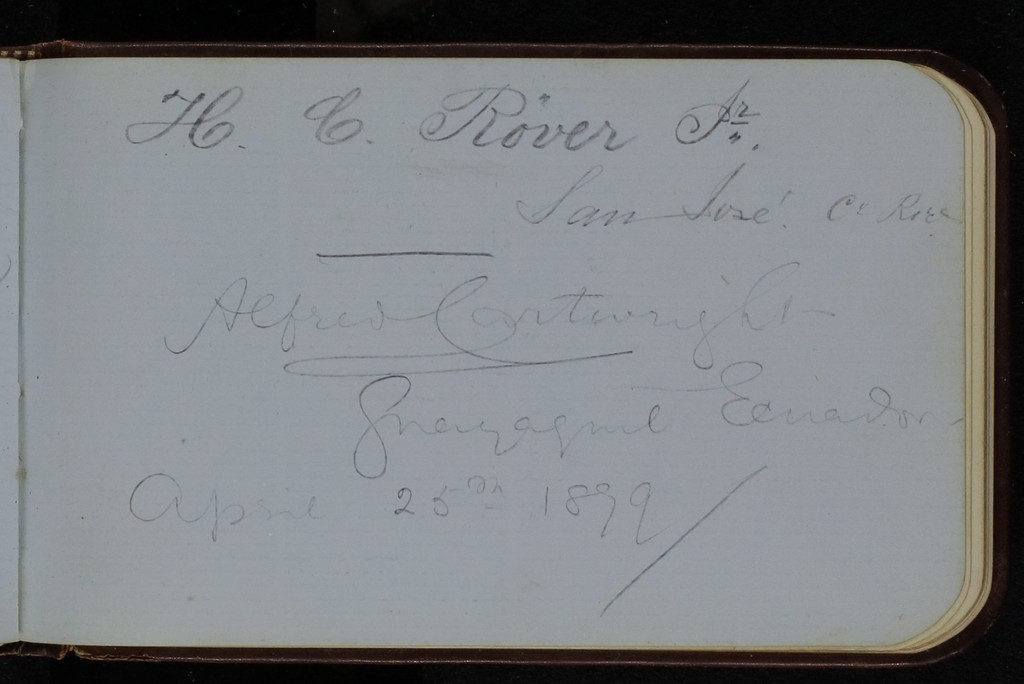 H. C. Röver Jr.
San José. Ca Rica
Alfred Cartwright
Guayaquil Ecuador
April 25th 1899